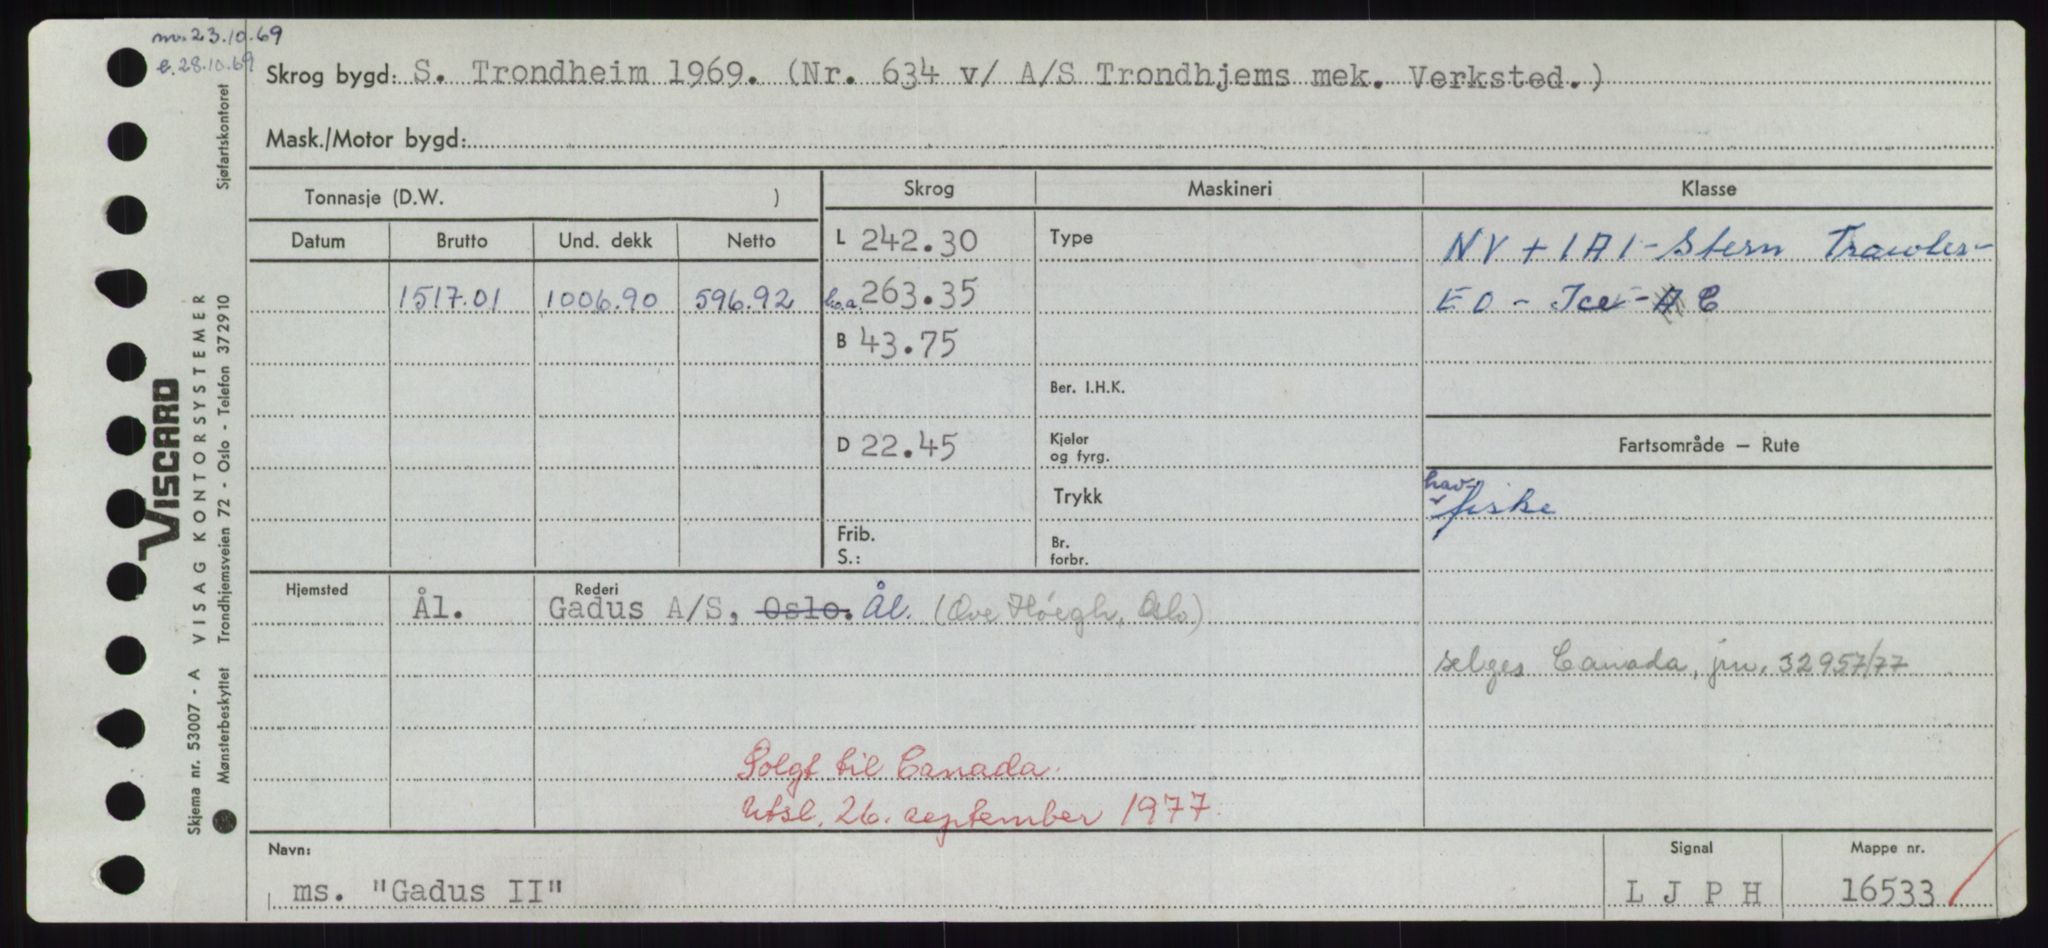 m. 23.10.69
e. 28.10.69
Skrog bygd: S. Trondheim 1969. (Nr. 634 v/ A/S Trondhjems mek. Verksted.)
Mask./Motor bygd:
Tonnasje (D.W. )
Skrog
Maskineri
Klasse
Datum Brutto Und. dekk Netto
L 242.30
Type
NV + 1A1 - Stern Trawler -
1517.01 1006.90 596.92
ho.a. 263.35
EO - Ice - A C
B 43.75
Ber. I.H.K.
D 22.45
Kjeler
og fyrg.
Fartsområde — Rute
Trykk
hav-
fiske
Frib.
S.:
Br.
forbr.
Hjemsted
Rederi
Ål.
Gadus A/S, Oslo. Ål. (Ove Høegh, Oslo.)
selges Canada, jnr. 32957/77
Solgt til Canada.
Utsl. 26. september 1977.
Navn:
Signal
Mappe nr.
ms. "Gadus II"
L J P H
16533
VISCARD
Skjema nr. 53007 - A VISAG KONTORSYSTEMER
Mønsterbeskyttet Trondhjemsveien 72 - Oslo - Telefon 372910 Sjøfartskontoret